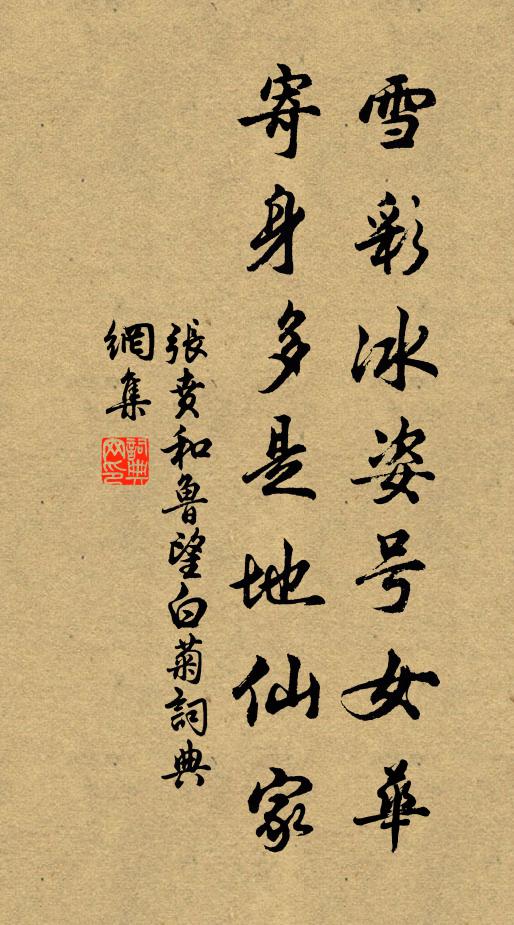 雪彩冰姿号女華
寄身多是地仙家
張賁和魯望白菊詞典
網集
詞典网印